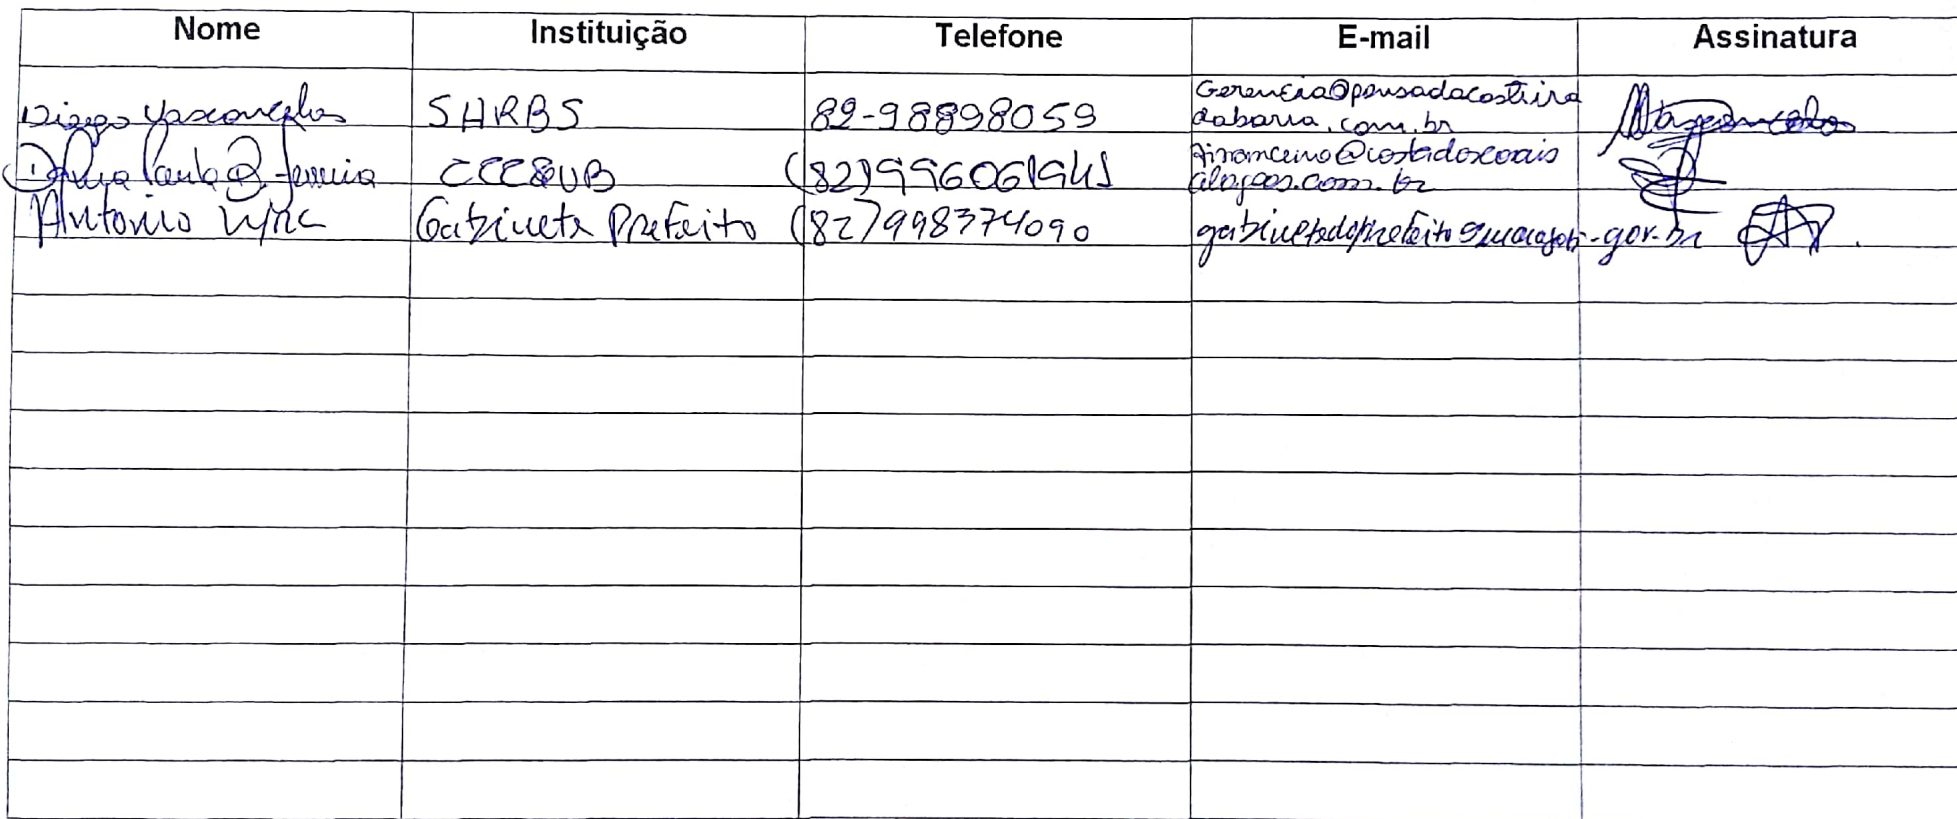 Nome Instituição Telefone E-mail Assinatura
Diego Vasconcelos SHRBS 82-98898059 Gerencia@pousadacosteira
dabarra.com.br
Paula Ferreira (82)996061941 financeiro@costadoscorais
alagoas.com.br
Antonio Gabinete Prefeito (82)998374090